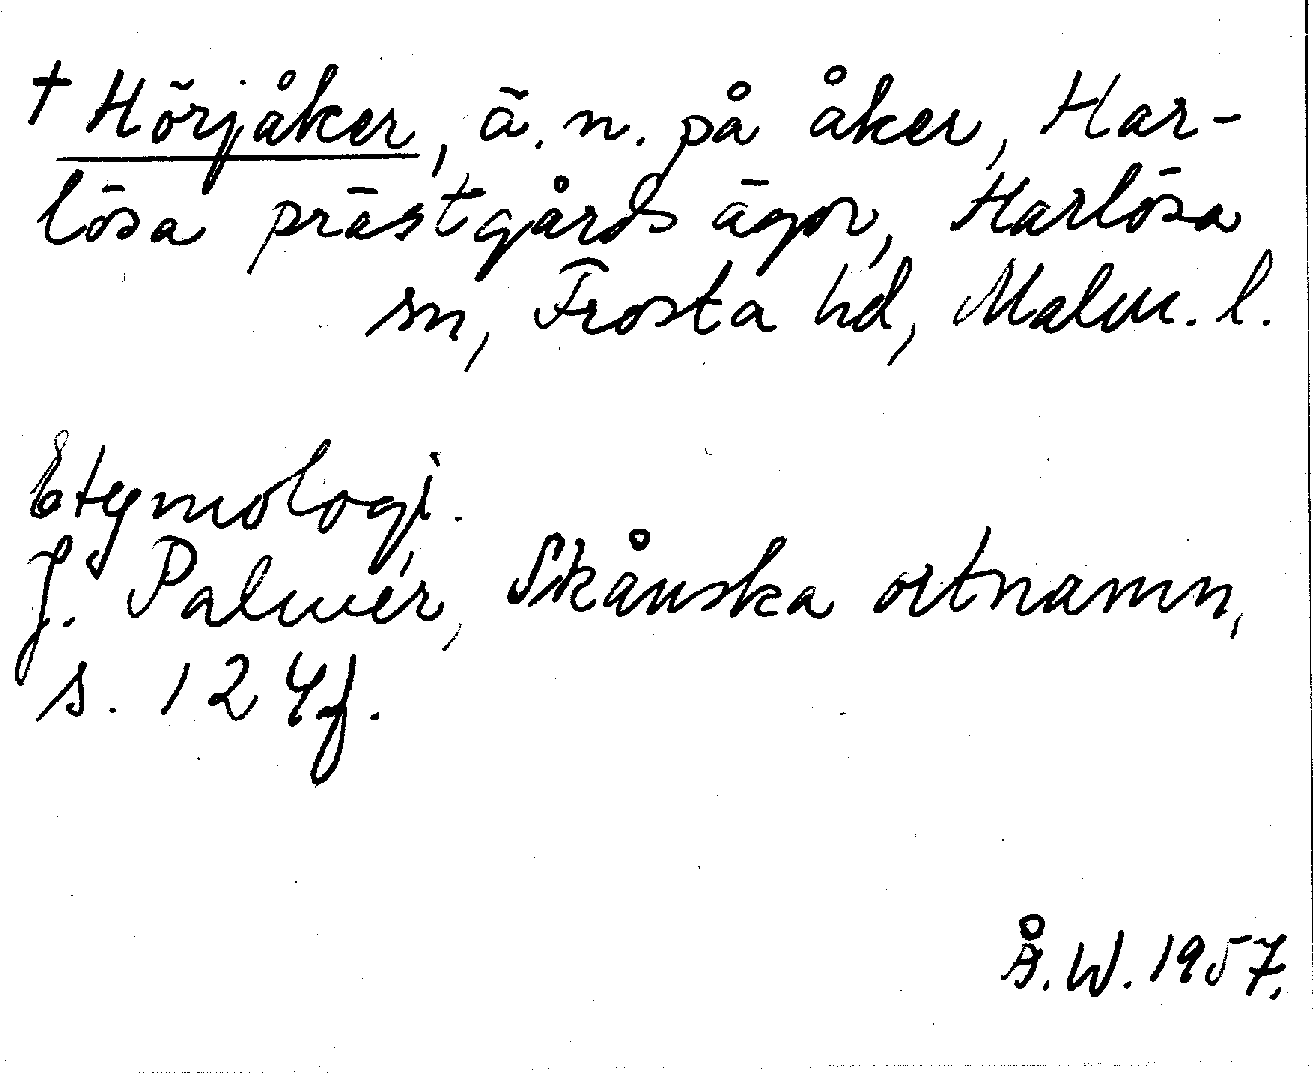 † Hörjåker, ä. n. på åker, Har-
lösa prästgårds ägor, Harlösa
sn, Frosta hd, Malm. l.
Etymologi.
J. Palmér, Skånska ortnamn,
s. 124f.
Å. W. 1957.